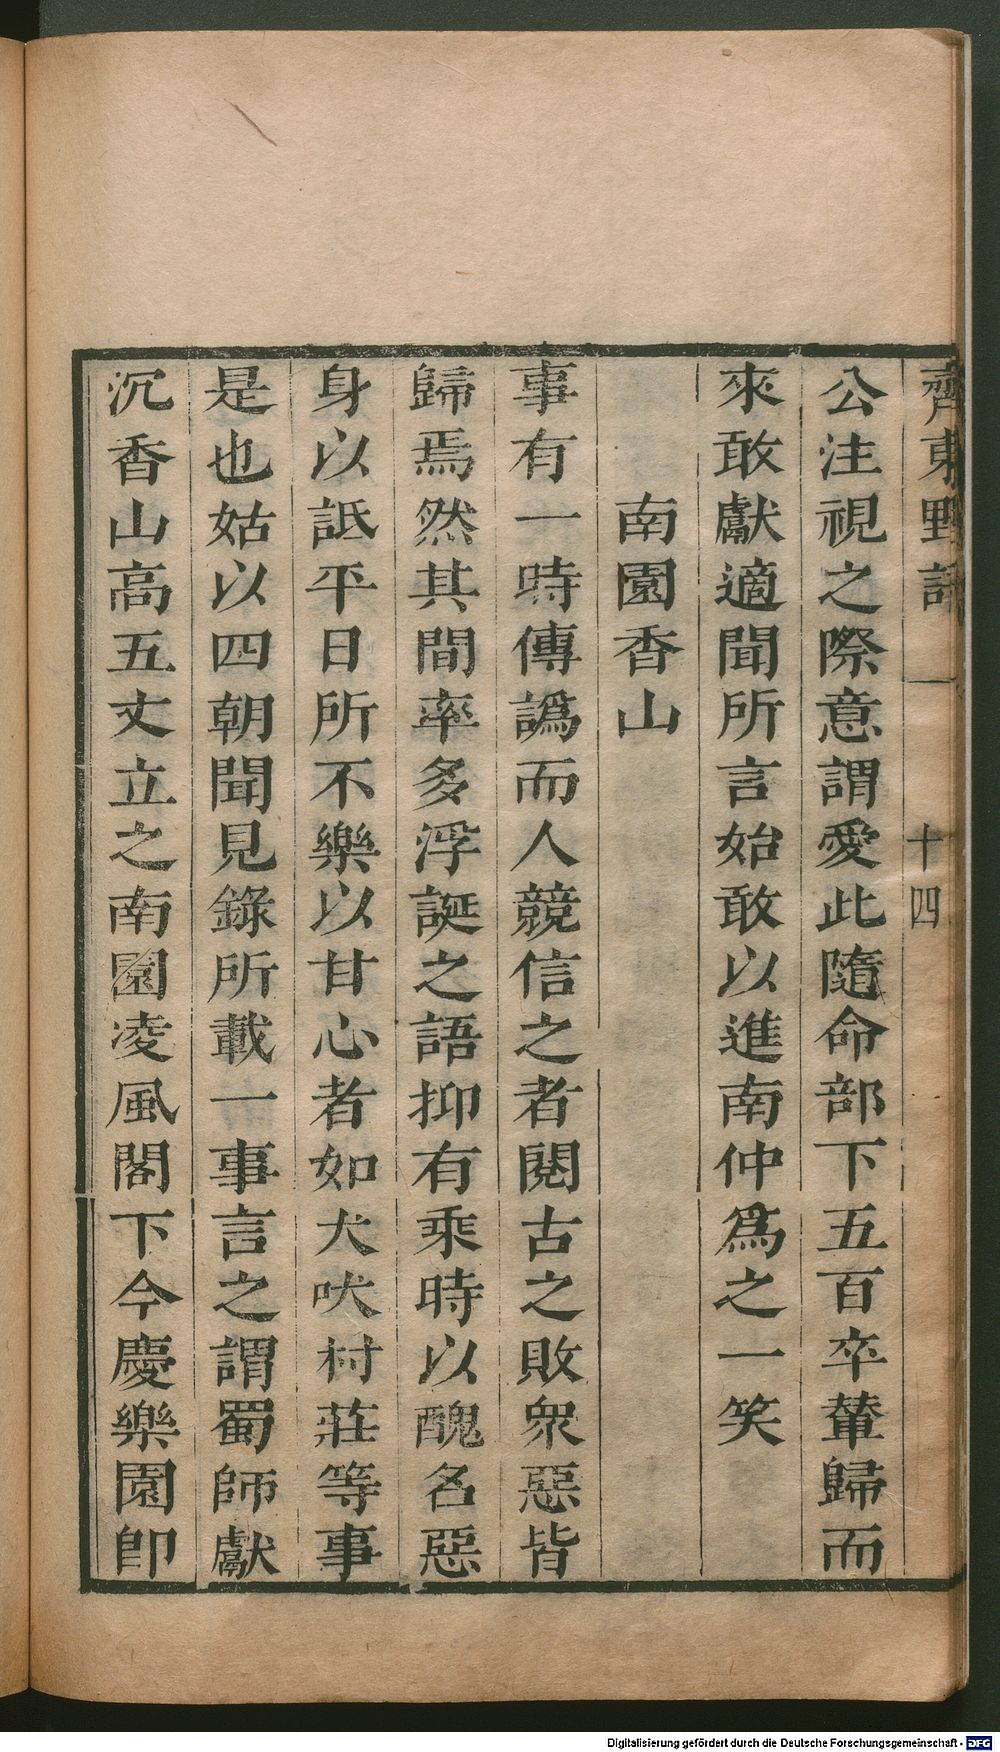 齊東野語
一
十四
公注視之際意謂愛此隨命部下五百卒輦歸而
來敢獻適聞所言始敢以進南仲爲之一笑
南園香山
事有一時傳譌而人競信之者閱古之敗衆惡皆
歸焉然其間率多浮誕之語抑有乘時以醜名惡
身以詆平日所不樂以甘心者如犬吠村莊等事
是也姑以四朝聞見錄所載一事言之謂蜀師獻
沉香山高五丈立之南園凌風閣下今慶樂園卽
Digitalisierung gefördert durch die Deutsche Forschungsgemeinschaft - DFG